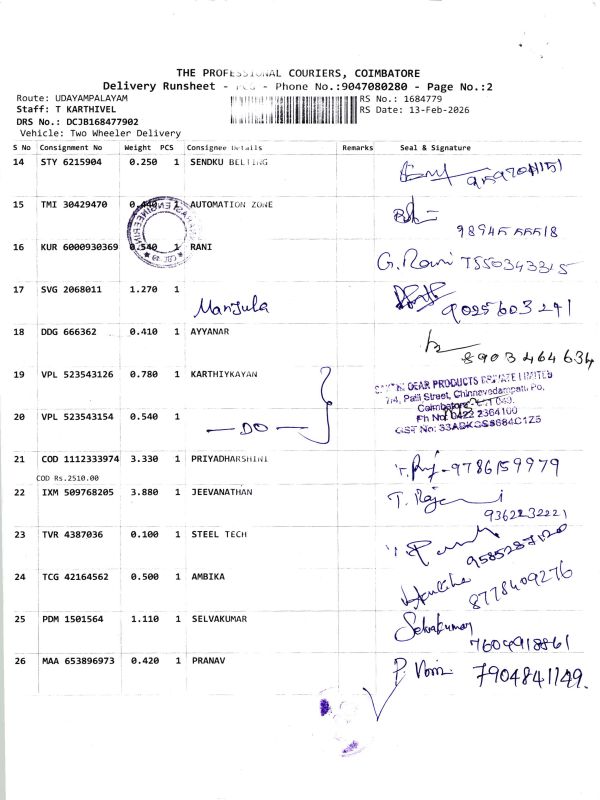 THE PROFESSIONAL COURIERS, COIMBATORE
Delivery Runsheet - PCS - Phone No.:9047080280 - Page No.:2
Route: UDAYAMPALAYAM RS No.: 1684779
Staff: T KARTHIVEL RS Date: 13-Feb-2026
DRS No.: DCJB168477902
Vehicle: Two Wheeler Delivery
S No Consignment No Weight PCS Consignee Details Remarks Seal & Signature
14 STY 6215904 0.250 1 SENDKU BELTING
15 TMI 30429470 0.440 1 AUTOMATION ZONE
16 KUR 6000930369 0.540 1 RANI G. Rani 7550343315
17 SVG 2068011 1.270 1 Manjula 9025603241
18 DDG 666362 0.410 1 AYYANAR 8903464634
19 VPL 523543126 0.780 1 KARTHIYKAYAN
GEAR PRODUCTS PRIVATE LIMITED
7/4, Palli Street, Chinnavedampatti Po,
Coimbatore
Ph No: 0422 2364100
GST No:
20 VPL 523543154 0.540 1 DO
21 COD 1112333974 3.330 1 PRIYADHARSHINI 9786159979
COD Rs.2510.00
22 IXM 509768205 3.880 1 JEEVANATHAN 9362232221
23 TVR 4387036 0.100 1 STEEL TECH
24 TCG 42164562 0.500 1 AMBIKA 8778409276
25 PDM 1501564 1.110 1 SELVAKUMAR Selvakumar 7604918861
26 MAA 653896973 0.420 1 PRANAV 7904841149.